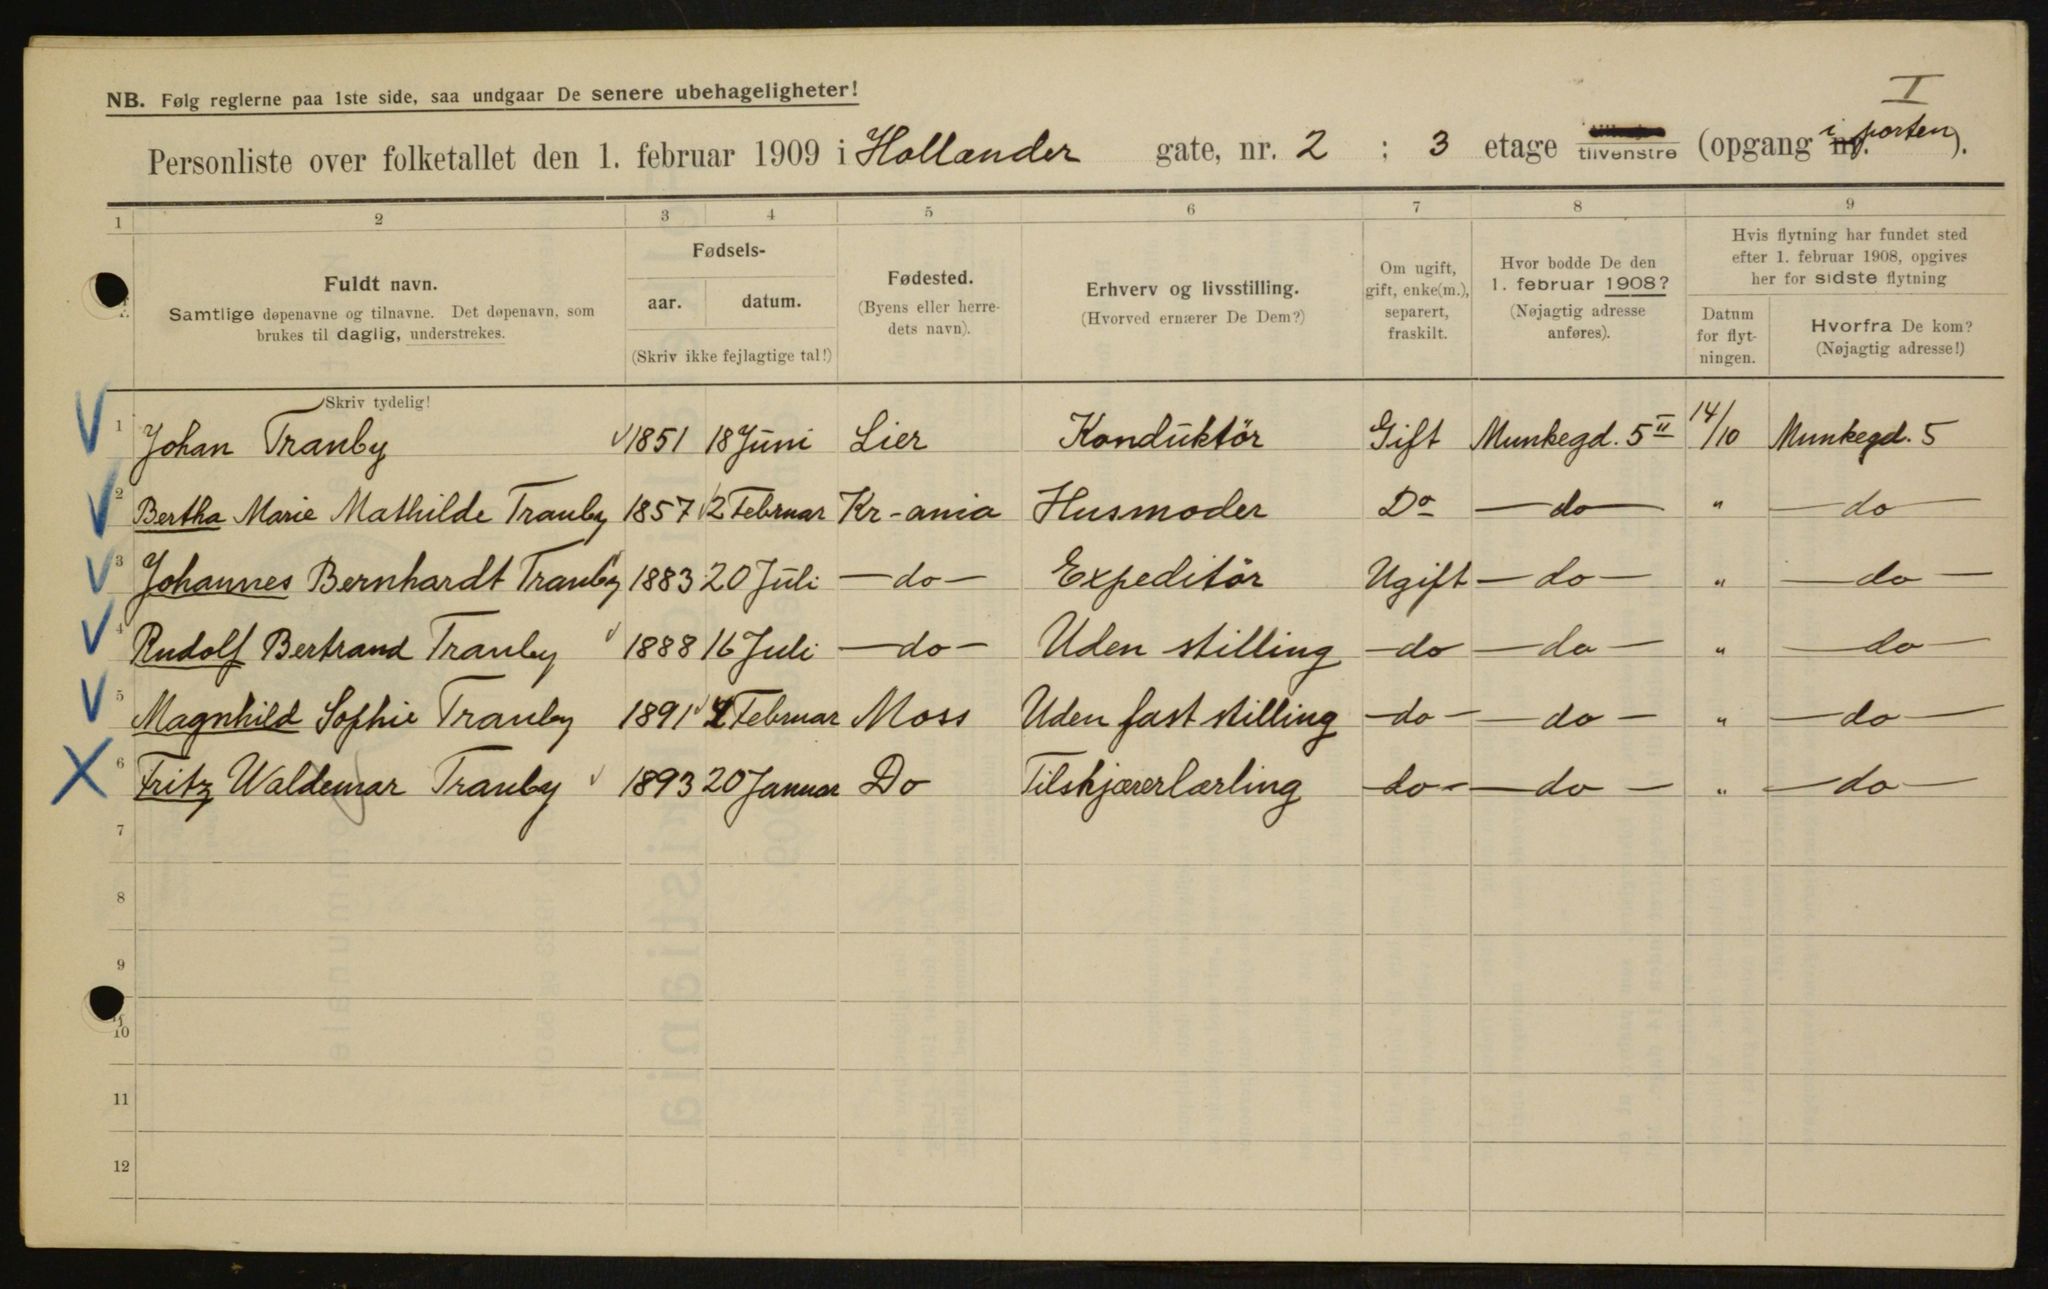 I
NB. Følg reglerne paa 1ste side, saa undgaar De senere ubehageligheter!
Personliste over folketallet den 1. februar 1909 i Hollander gate, nr. 2 ; 3 etage tilvenstre (opgang nr. i porten).
1 2 3 4 5 6 7 8 9
Fuldt navn.
Samtlige døpenavne og tilnavne. Det døpenavn, som
brukes til daglig, understrekes.
Fødsels-
aar. datum.
(Skriv ikke fejlagtige tal!)
Fødested.
(Byens eller herre-
dets navn).
Erhverv og livsstilling.
(Hvorved ernærer De Dem?)
Om ugift,
gift, enke(m.),
separert,
fraskilt.
Hvor bodde De den
1. februar 1908?
(Nøjagtig adresse
anføres).
Hvis flytning har fundet sted
efter 1. februar 1908, opgives
her for sidste flytning
Datum
for flyt-
ningen.
Hvorfra De kom?
(Nøjagtig adresse!)
Skriv tydelig!
1 Johan Tranby 1851 18 Juni Lier Konduktör Gift Munkegd. 5 II 14/10 Munkegd. 5
2 Bertha Marie Mathilde Tranby 1857 2 Februar Kr-ania Husmoder Do — do — " — do —
3 Johannes Bernhardt Tranby 1883 20 Juli — do — Expeditör Ugift — do — " — do —
4 Rudolf Bertrand Tranby 1888 16 Juli — do — Uden stilling — do — do — " — do —
5 Magnhild Sophie Tranby 1891 4 Februar Moss Uden fast stilling — do — — do — " — do —
6 Fritz Waldemar Tranby 1893 20 Januar Do Tilskjærerlærling do — — do — " — do —
7
8
9
10
11
12